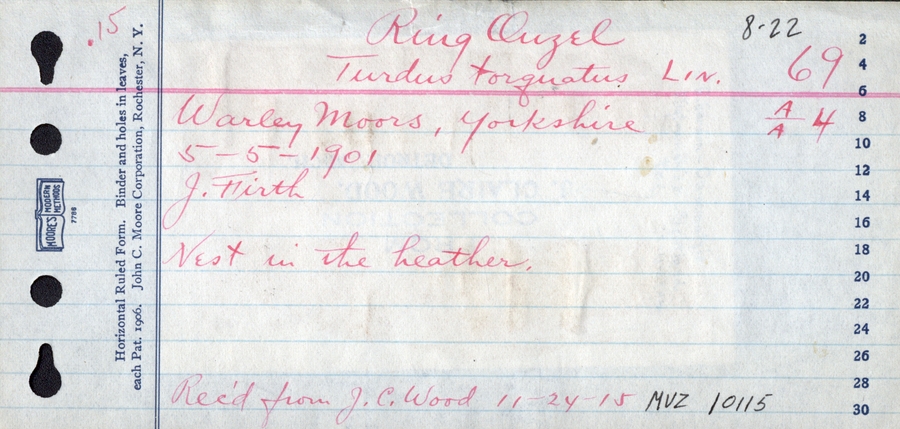 .15
Ring Ouzel 8-22
Turdus torquatus Lin. 69
Warley Moors, Yorkshire A/A 4
5-5-1901
J. Firth
Nest in the heather.
Rec'd from J. C. Wood 11-24-15 MVZ 10115
2
4
6
8
10
12
14
16
18
20
22
24
26
28
30
Horizontal Ruled Form. Binder and holes in leaves,
each Pat. 1906. John C. Moore Corporation, Rochester, N. Y.
MOORE'S
MODERN
METHODS
7798